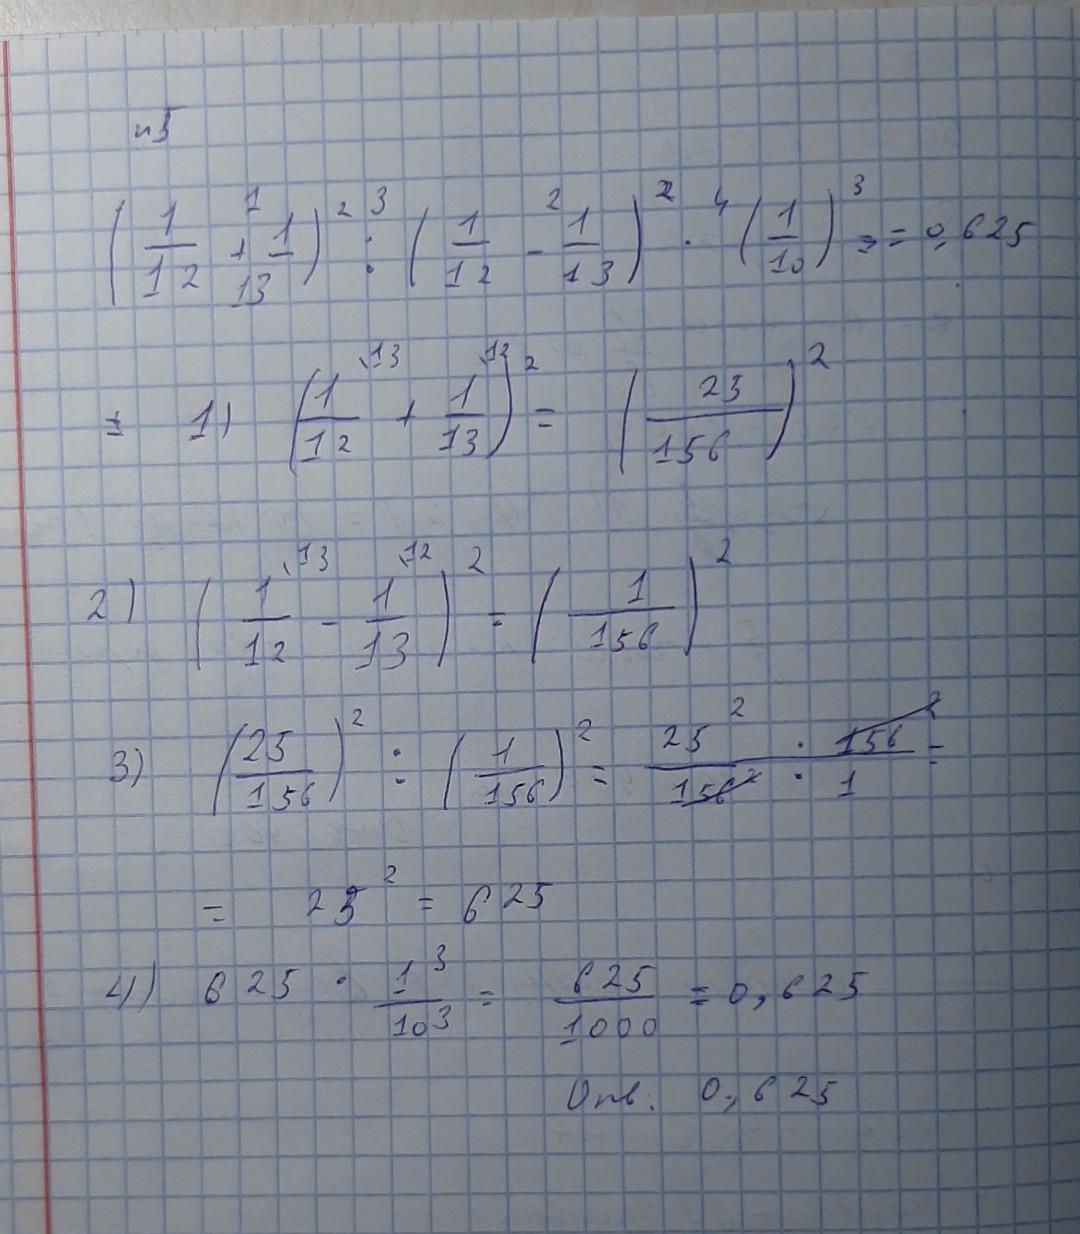 n5
(1/12 + 1/13)² : (1/12 - 1/13)² · (1/10)³ = = 0,625
1 3 2 4
= 1) (1/12 ^13 + 1/13 ^12)² = (23/156)²
2) (1/12 ^13 - 1/13 ^12)² = (1/156)²
3) (25/156)² : (1/156)² = 25² · 156² / 156² · 1 =
= 25² = 625
4) 625 · 1³/10³ = 625/1000 = 0,625
Отв. 0,625